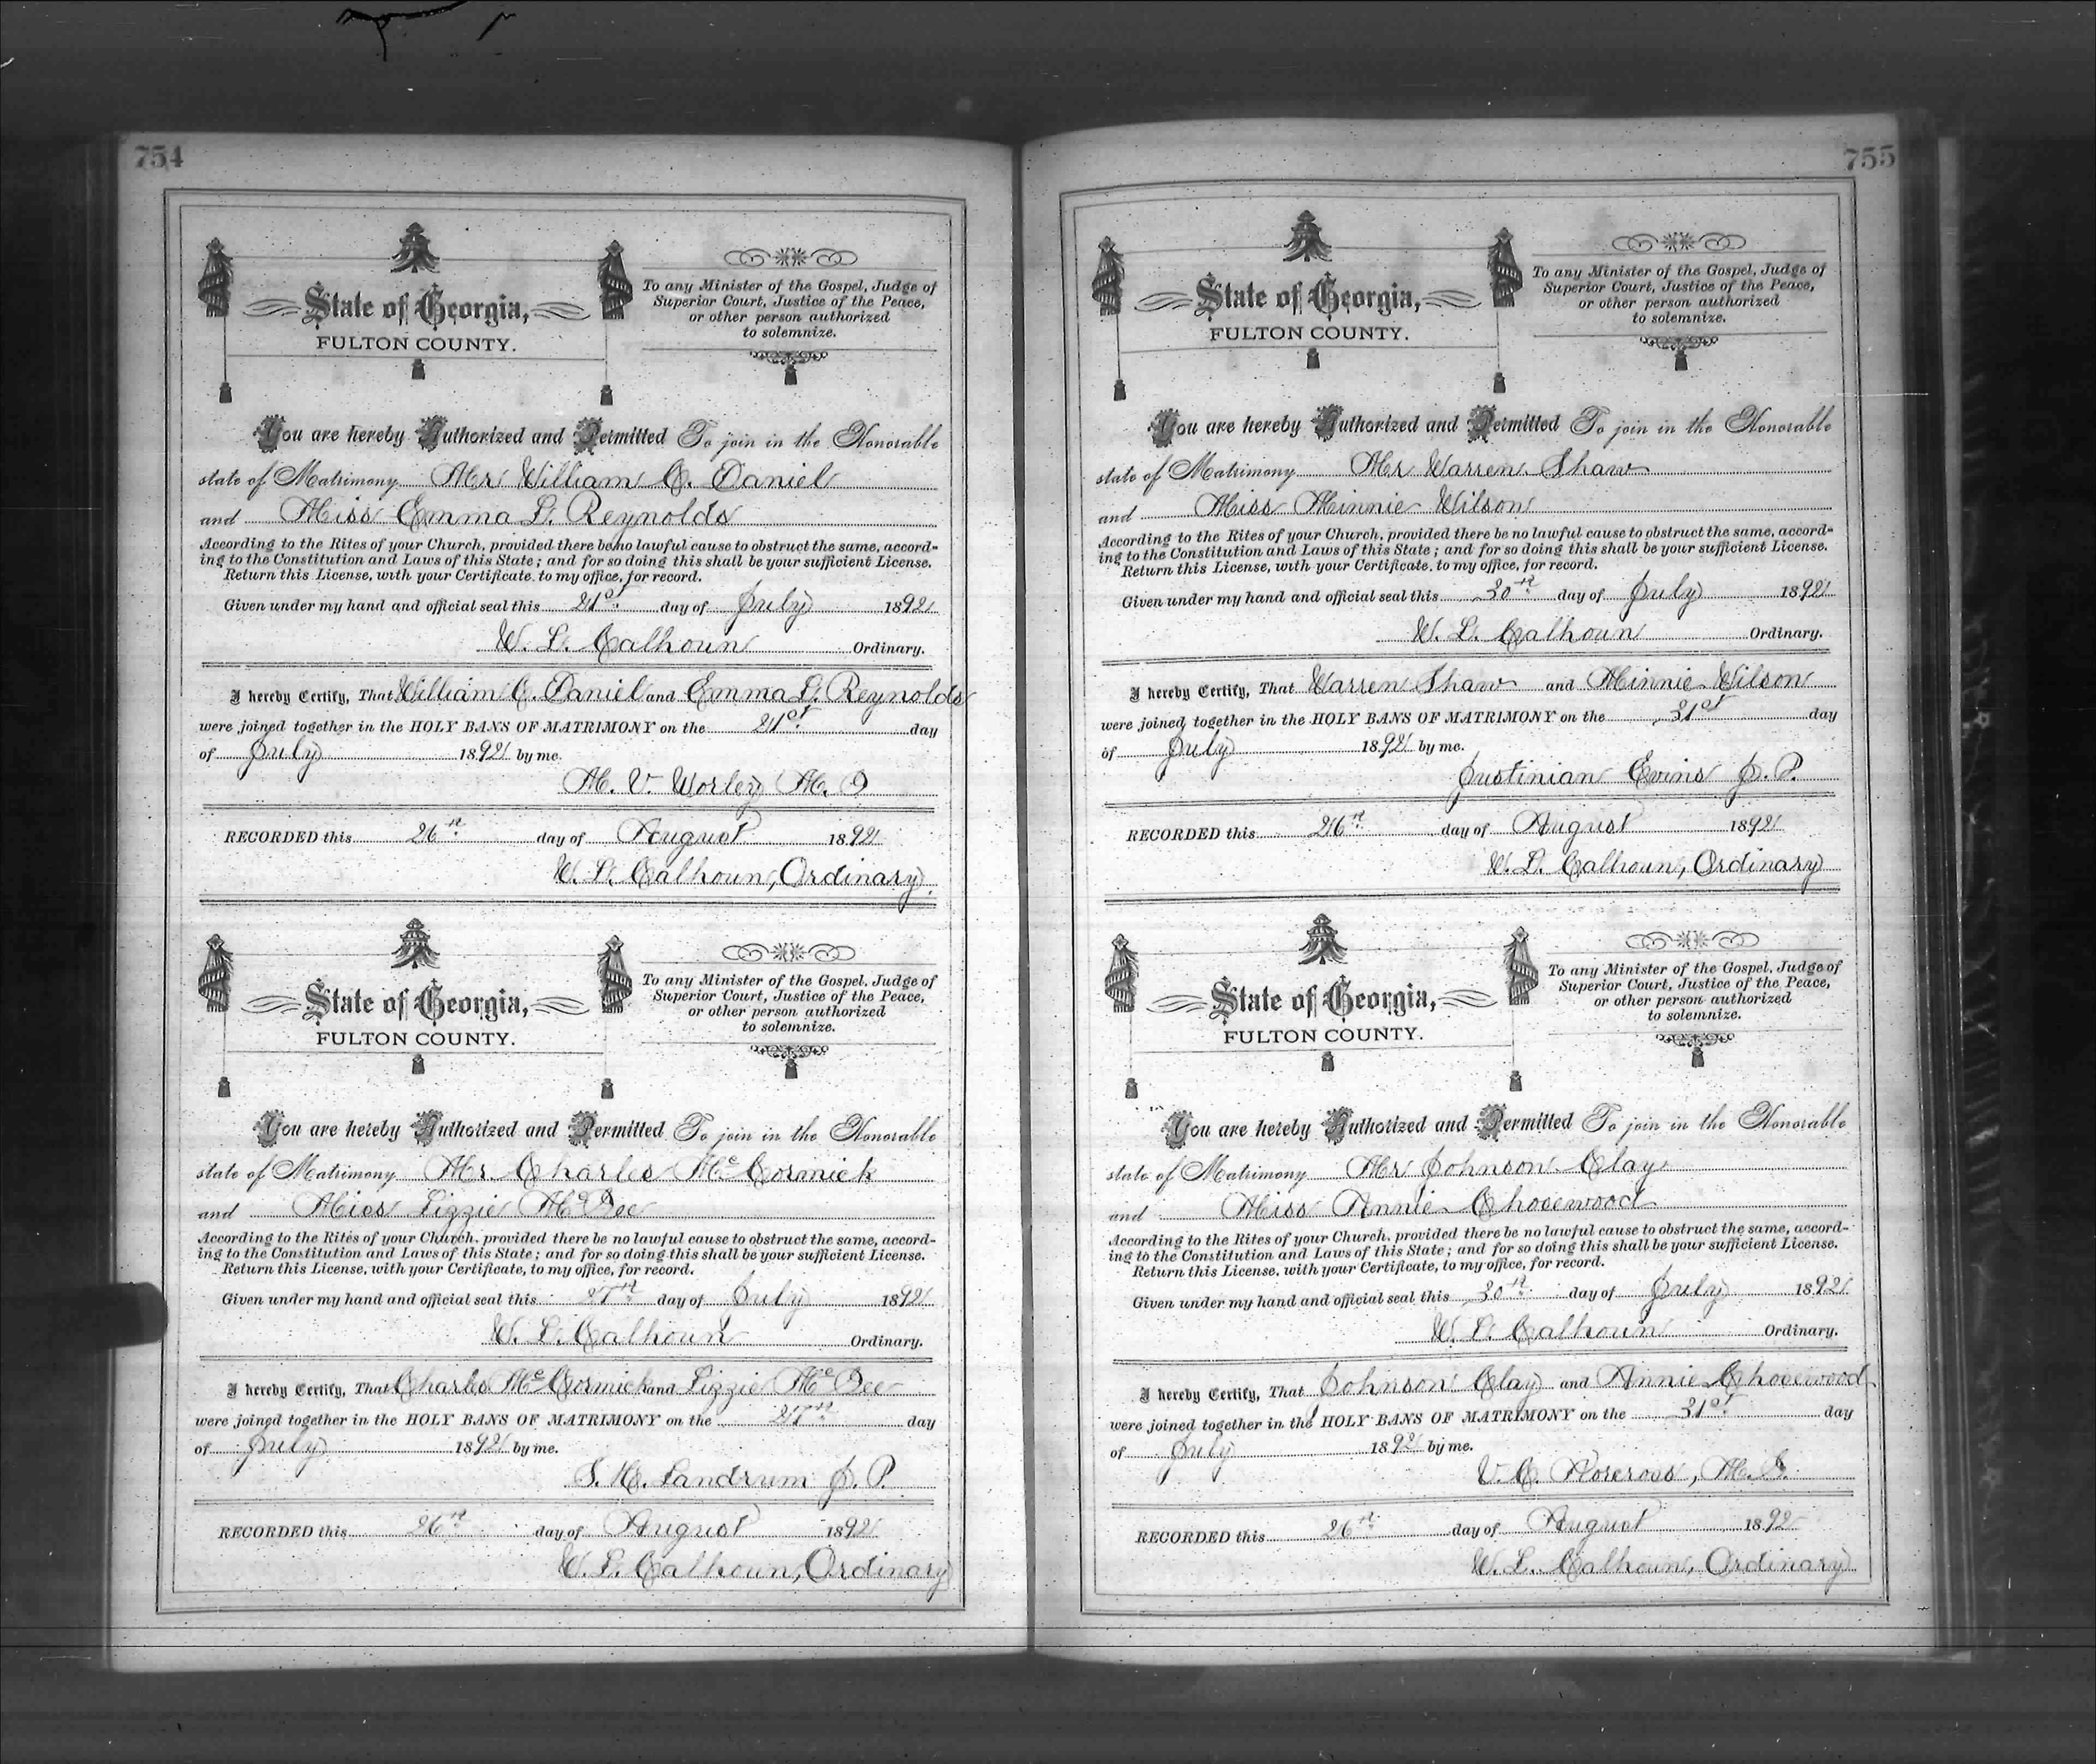 754
State of Georgia,
FULTON COUNTY.
To any Minister of the Gospel, Judge of
Superior Court, Justice of the Peace,
or other person authorized
to solemnize.
You are hereby Authorized and Permitted To join in the Honorable
state of Matrimony Mr William C. Daniel
and Miss Emma L. Reynolds
According to the Rites of your Church, provided there be no lawful cause to obstruct the same, accord-
ing to the Constitution and Laws of this State; and for so doing this shall be your sufficient License.
Return this License, with your Certificate, to my office, for record.
Given under my hand and official seal this 21st day of July 1892
W. L. Calhoun Ordinary.
I hereby Certify, That William C. Daniel and Emma L. Reynolds
were joined together in the HOLY BANS OF MATRIMONY on the 21st day
of July 1892 by me.
M. V. Worley M. G
RECORDED this 26th day of August 1892
W. L. Calhoun, Ordinary
State of Georgia,
FULTON COUNTY.
To any Minister of the Gospel, Judge of
Superior Court, Justice of the Peace,
or other person authorized
to solemnize.
You are hereby Authorized and Permitted To join in the Honorable
state of Matrimony Mr. Charles McCormick
and Miss Lizzie McGee
According to the Rites of your Church, provided there be no lawful cause to obstruct the same, accord-
ing to the Constitution and Laws of this State; and for so doing this shall be your sufficient License.
Return this License, with your Certificate, to my office, for record.
Given under my hand and official seal this 27th day of July 1892
W. L. Calhoun Ordinary.
I hereby Certify, That Charles McCormick and Lizzie McGee
were joined together in the HOLY BANS OF MATRIMONY on the 27th day
of July 1892 by me.
S. H. Landrum J. P.
RECORDED this 26th day of August 1892
W. L. Calhoun, Ordinary
755
State of Georgia,
FULTON COUNTY.
To any Minister of the Gospel, Judge of
Superior Court, Justice of the Peace,
or other person authorized
to solemnize.
You are hereby Authorized and Permitted To join in the Honorable
state of Matrimony Mr Warren Shaw
and Miss Minnie Wilson
According to the Rites of your Church, provided there be no lawful cause to obstruct the same, accord-
ing to the Constitution and Laws of this State; and for so doing this shall be your sufficient License.
Return this License, with your Certificate, to my office, for record.
Given under my hand and official seal this 30th day of July 1892
W. L. Calhoun Ordinary.
I hereby Certify, That Warren Shaw and Minnie Wilson
were joined together in the HOLY BANS OF MATRIMONY on the 31st day
of July 1892 by me.
Justinian Evins J. P.
RECORDED this 26th day of August 1892
W. L. Calhoun, Ordinary
State of Georgia,
FULTON COUNTY.
To any Minister of the Gospel, Judge of
Superior Court, Justice of the Peace,
or other person authorized
to solemnize.
You are hereby Authorized and Permitted To join in the Honorable
state of Matrimony Mr Johnson Clay
and Miss Annie Chosewood
According to the Rites of your Church, provided there be no lawful cause to obstruct the same, accord-
ing to the Constitution and Laws of this State; and for so doing this shall be your sufficient License.
Return this License, with your Certificate, to my office, for record.
Given under my hand and official seal this 30th day of July 1892
W. L. Calhoun Ordinary.
I hereby Certify, That Johnson Clay and Annie Chosewood
were joined together in the HOLY BANS OF MATRIMONY on the 31st day
of July 1892 by me.
V. C. Norcross, M. G.
RECORDED this 26th day of August 1892
W. L. Calhoun, Ordinary